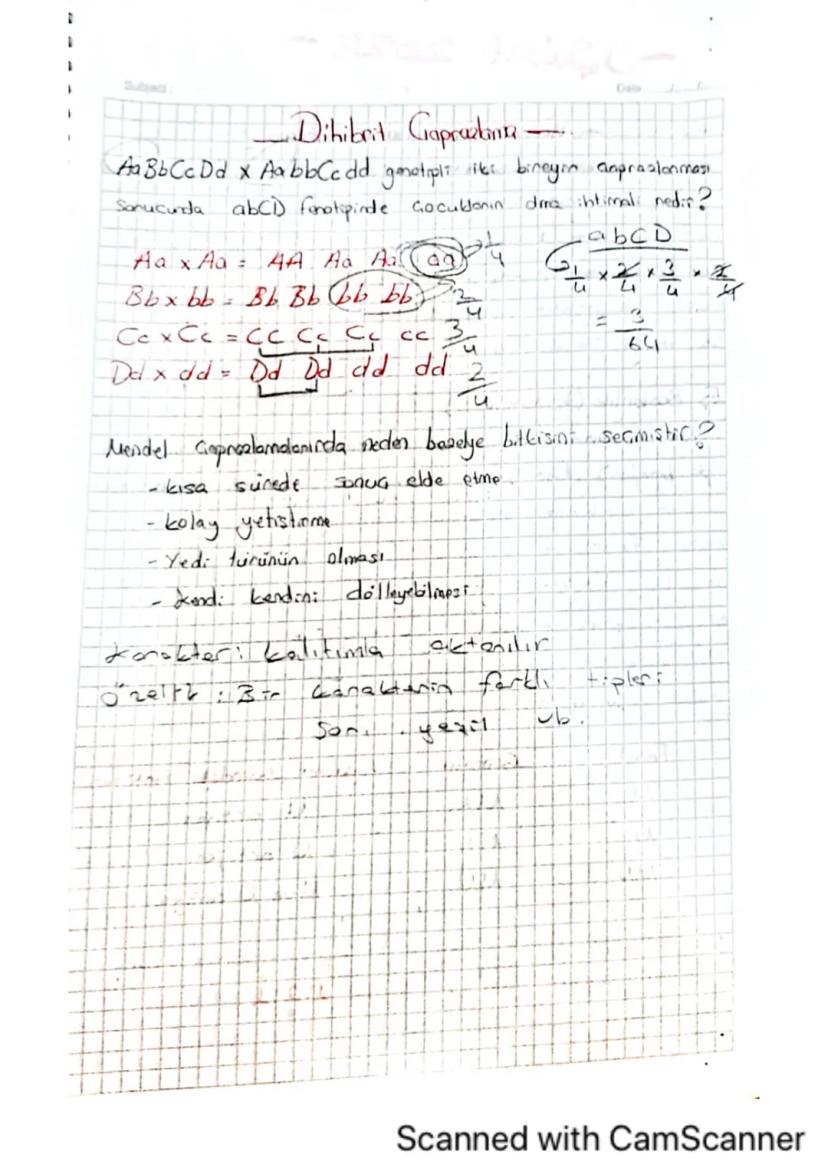 Subject:
Date / /
Dihibrit Çaprazlama
AaBbCcDd x AabbCcdd genotipli iki bireyin çaprazlanması
sonucunda abCD fenotipinde çocuklarının olma ihtimali nedir?
Aa x Aa = AA Aa Aa aa 1/4
Bb x bb = Bb Bb bb bb 2/4
Cc x Cc = CC Cc Cc cc 3/4
Dd x dd = Dd Dd dd dd 2/4
abCD
1/4 x 2/4 x 3/4 x 2/4
= 3/64
Mendel çaprazlamalarında neden bezelye bitkisini seçmiştir?
- kısa sürede sonuç elde etme
- kolay yetiştirme
- Yedi türünün olması
- kendi kendini dölleyebilmesi
karakter: kalıtımla aktarılır
özellik: Bir karakterin farklı tipleri
sarı, yeşil vb.
Scanned with CamScanner